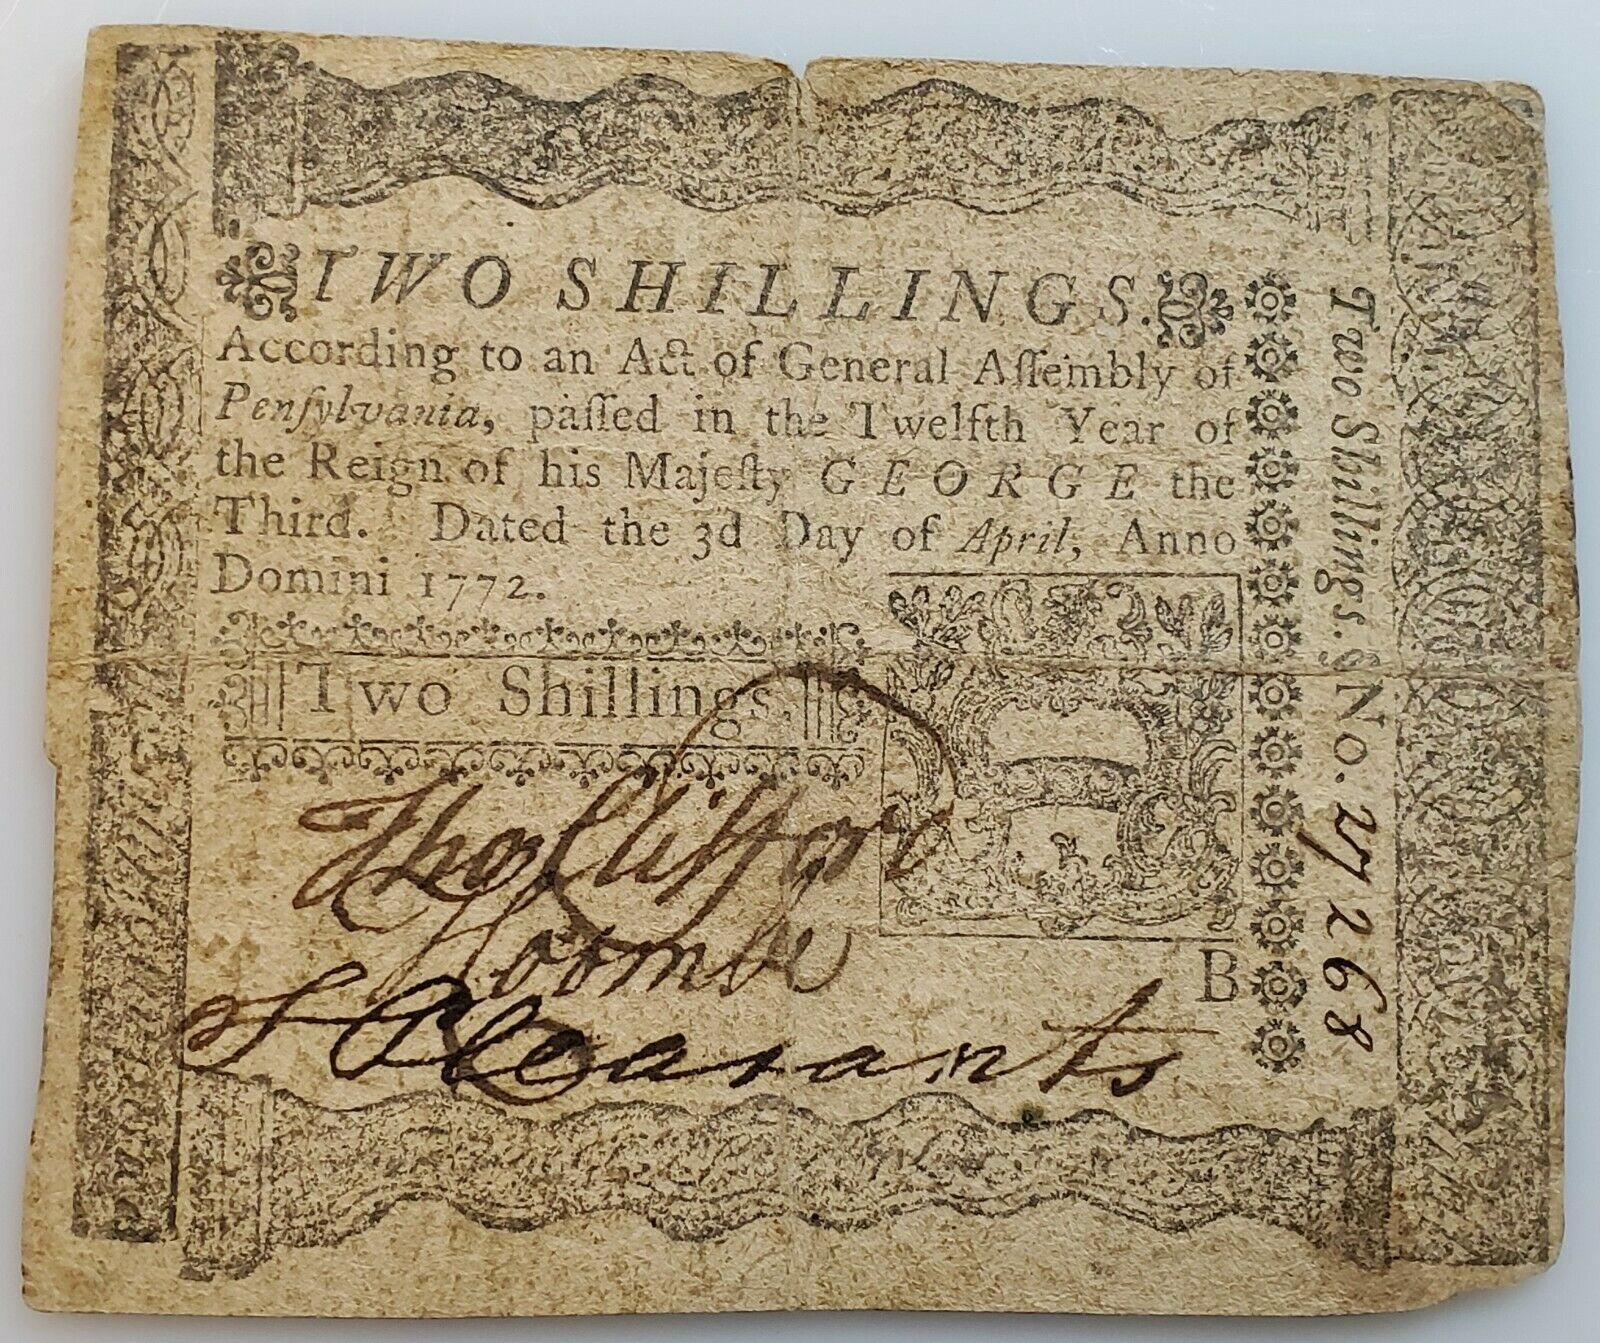 TWO SHILLINGS.
According to an Act of General Aſſembly of
Penſylvania, paſſed in the Twelfth Year of
the Reign of his Majeſty GEORGE the
Third. Dated the 3d Day of April, Anno
Domini 1772.
Two Shillings.
Tho Clifford
J Pleasants
B
Two Shillings. No. 27268